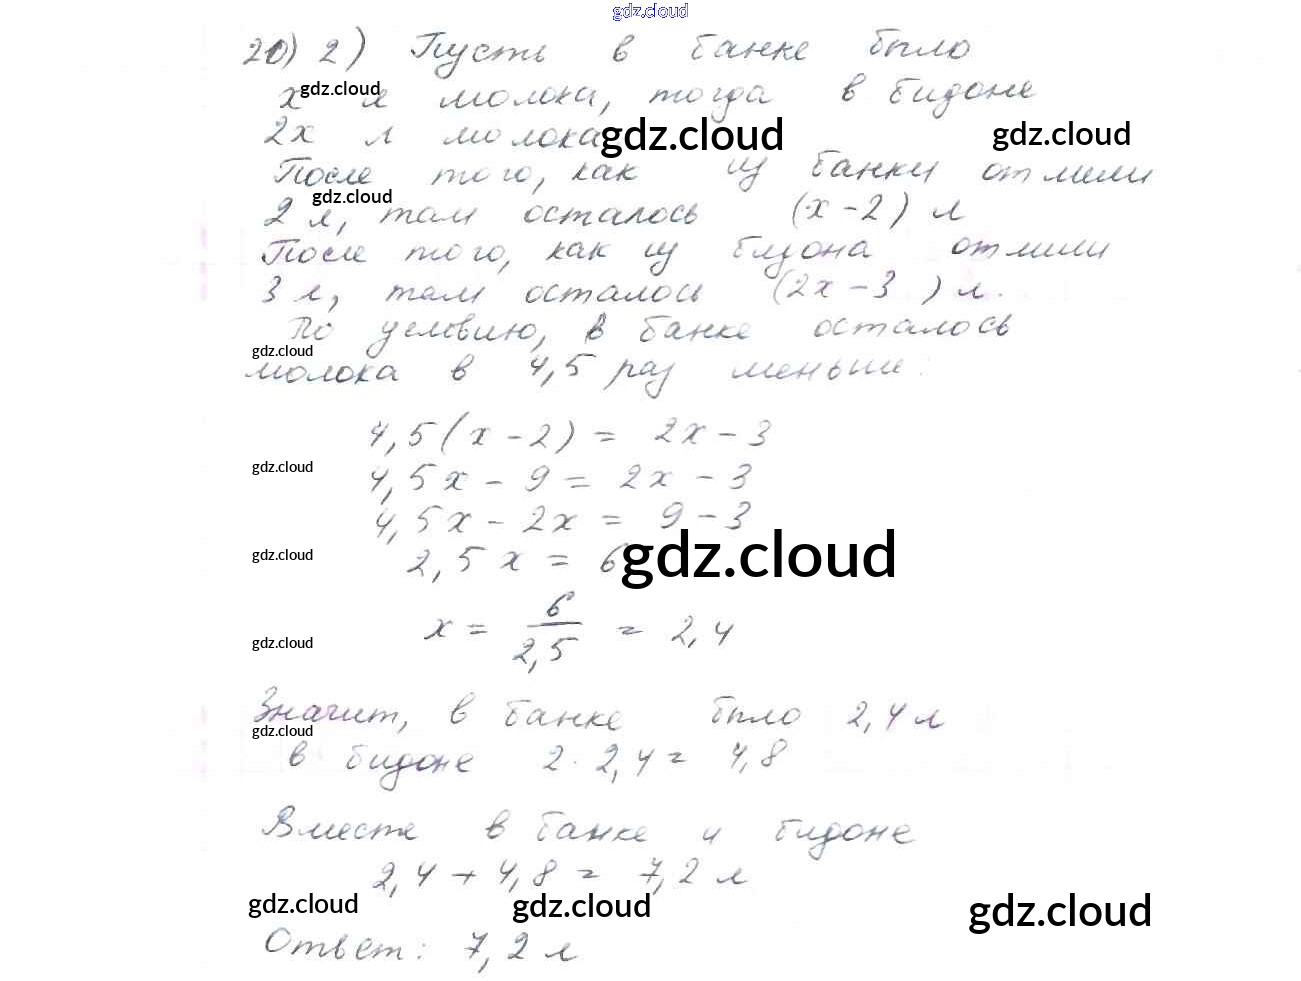 gdz.cloud
20) 2) Пусть в банке было
x л молока, тогда в бидоне
gdz.cloud
2x л молока
gdz.cloud
gdz.cloud
После того, как из банки отлили
gdz.cloud
2 л, там осталось (x - 2) л
После того, как из бидона отлили
3 л, там осталось (2x - 3) л.
По условию, в банке осталось
gdz.cloud
молока в 4,5 раз меньше:
4,5(x - 2) = 2x - 3
gdz.cloud
4,5x - 9 = 2x - 3
4,5x - 2x = 9 - 3
gdz.cloud
2,5x = 6
gdz.cloud
x = 6/2,5 = 2,4
gdz.cloud
Значит, в банке было 2,4 л
gdz.cloud
в бидоне 2 · 2,4 = 4,8
Вместе в банке и бидоне
2,4 + 4,8 = 7,2 л
gdz.cloud
gdz.cloud
gdz.cloud
Ответ: 7,2 л